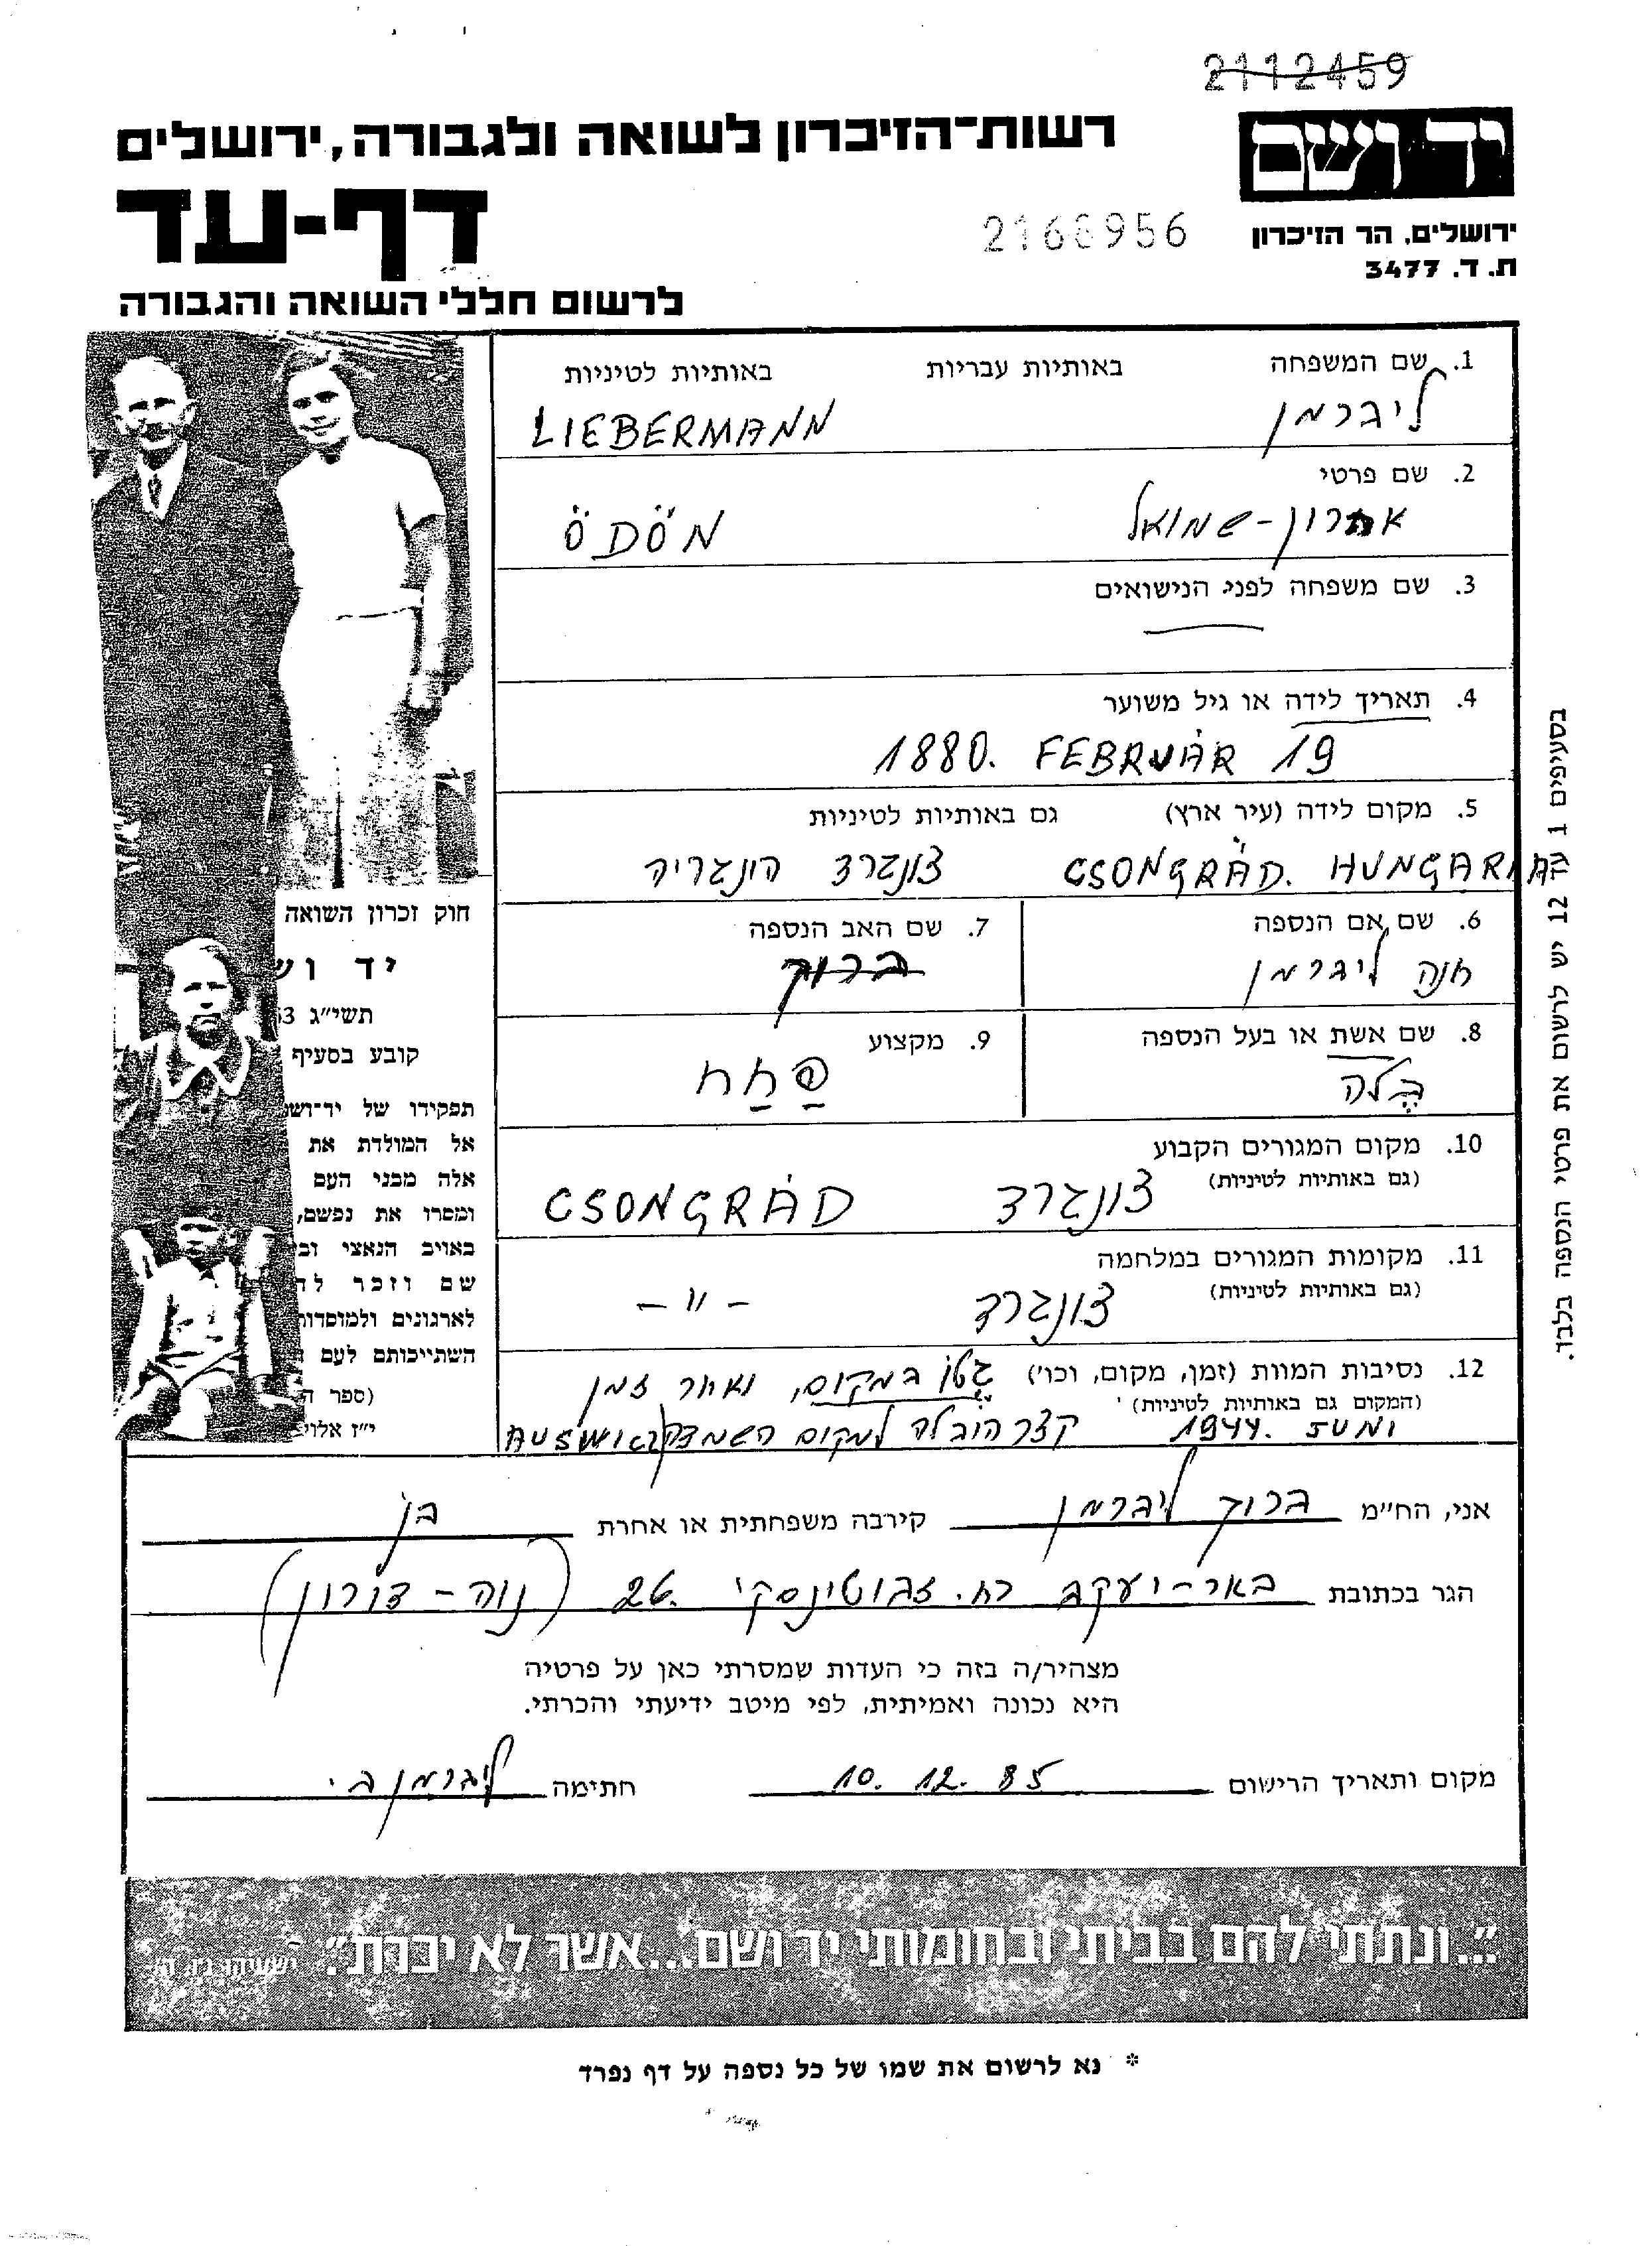 2112459
יד ושם
רשות-הזיכרון לשואה ולגבורה, ירושלים
דף-עד
2168956
ירושלים, הר הזיכרון
ת. ד. 3477
לרשום חללי השואה והגבורה
1. שם המשפחה באותיות עבריות באותיות לטיניות
ליברמן LIEBERMANN
2. שם פרטי
אהרון-שמואל ÖDÖN
3. שם משפחה לפני הנישואים
—
4. תאריך לידה או גיל משוער
1880. FEBRUÁR 19
5. מקום לידה (עיר ארץ) גם באותיות לטיניות
CSONGRÁD. HUNGARIA צונגרד הונגריה
6. שם אם הנספה
חנה ליברמן
7. שם האב הנספה
ברוך
8. שם אשת או בעל הנספה
בלה
9. מקצוע
פַחַח
10. מקום המגורים הקבוע
(גם באותיות לטיניות)
צונגרד CSONGRÁD
11. מקומות המגורים במלחמה
(גם באותיות לטיניות)
צונגרד - " -
12. נסיבות המוות (זמן, מקום, וכו') גטו במקום, ואחר זמן
(המקום גם באותיות לטיניות)
1944. JUNI קצר הובלה למקום השמד AUS
בסעיפים 1 עד 12 יש לרשום את פרטי הנספה בלבד.
חוק זכרון השואה
יד וש
תשי"ג 53
קובע בסעיף
תפקידו של יד-ושם
אל המולדת את
אלה מבני העם
ומסרו את נפשם,
באויב הנאצי וב
שם וזכר לה
לארגונים ולמוסדות
השתייכותם לעם
(ספר ה
י"ז אלול
אני, הח"מ ברוך ליברמן קירבה משפחתית או אחרת בן
הגר בכתובת באר-יעקב רח. זבוטינסקי 26. (נוה-דורון)
מצהיר/ה בזה כי העדות שמסרתי כאן על פרטיה
היא נכונה ואמיתית, לפי מיטב ידיעתי והכרתי.
מקום ותאריך הרישום 10. 12. 85 חתימה ליברמן ב.
"...ונתתי להם בביתי ובחומותי יד ושם...אשר לא יכרת". ישעיהו נו, ה'
* נא לרשום את שמו של כל נספה על דף נפרד